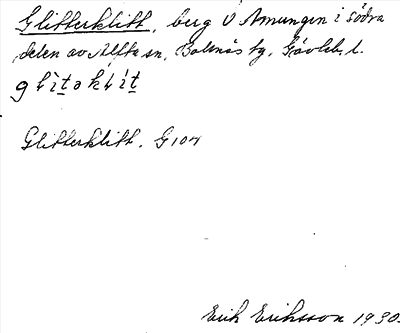 Glitterklitt, berg V Amungen i södra
delen av Alfta sn, Bollnäs tg, Gävleb. l.
Glitterklitt. G 104
Erik Eriksson 1930.